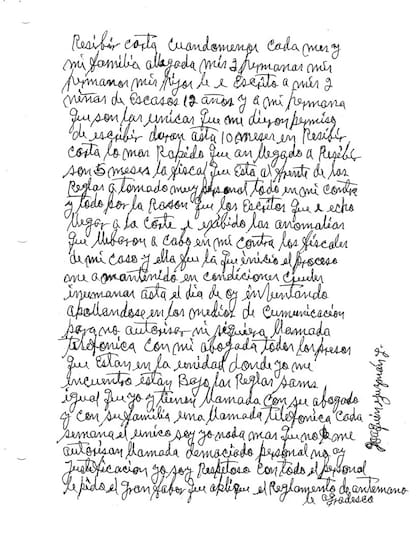 Resibir carta cuandomenos cada mes y
mi familia abogada mis 2 hermanas mis
hermanos mis hijos le e Escrito a mis 2
niñas de Escasos 12 años y a mi hermana
que son las unicas que me dieron permiso
de escribir duran asta 10 meses en Resibir
carta lo mas Rapido que an llegado a Resibir
son 5 meses la fiscal que está al frente de las
Reglas a tomado muy personal todo en mi contra
y todo por la Rason que los Escritos que e echo
llegar a la corte e exibido las anomalias
que llebaron a cabo en mi contra los fiscales
de mi caso y ella fue la que inicio el proceso
me a mantenido en condiciones crueles
inumanas asta el dia de oy inbentando
apollandose en los medios de cumunicacion
para no autorisar ni siquiera llamada
telefonica con mi abogada todos los presos
que Estan en la unidad donde yo me
encuentro estan Bajo las Reglas sams
igual que yo y tienen llamada con su abogado
y con su familia una llamada telefonica cada
semana el unico soy yo nada mas que no me
autorisan llamada demaciado personal no ay
Justificacion yo soy Respetoso con todo el personal
le pido el Gran fabor que aplique el Reglamento de antemano
le agradesco
Joaquin Guzmán L.